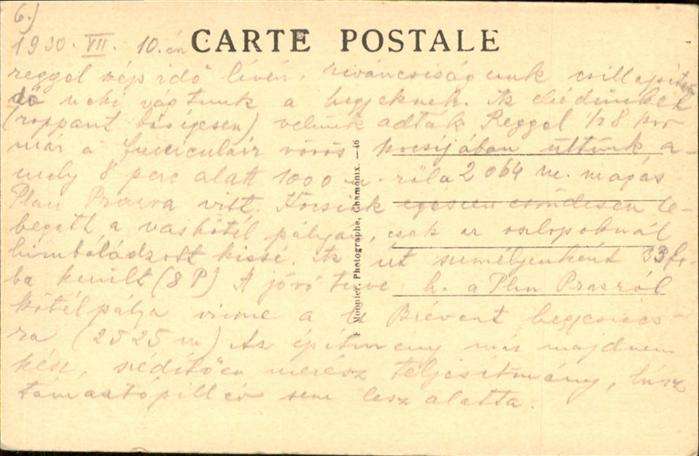 6.)
CARTE POSTALE
1930. VII. 10.én
reggel szép idő lévén, kiváncsiságunk csillapítan-
dó neki vágtunk a hegyeknek. Az ebédünket
(roppant bőségesen) velünk adták. Reggel 1/2 8 kor
már a funiculair vörös kocsijában ültünk, a-
mely 8 perc alatt 1000 m. ről a 2064 m. magas
Plan Praz ra vitt. Kocsink egészen csöndesen le-
begett a vaskötél pályán, csak az oszlopoknál
himbáládzott kissé. Az út személyenként 33 fr.-
ba került (8 P) A jövő terve h. a Plan Praz ról
kötélpálya vinne a le Brévent hegycsúcs-
ra (2525 m) Az építmény már majdnem
kész, szédítően merész teljesítmény, húsz
támasztópillér sem lesz alatta.
Monnier, Photographe, Chamonix. — 46